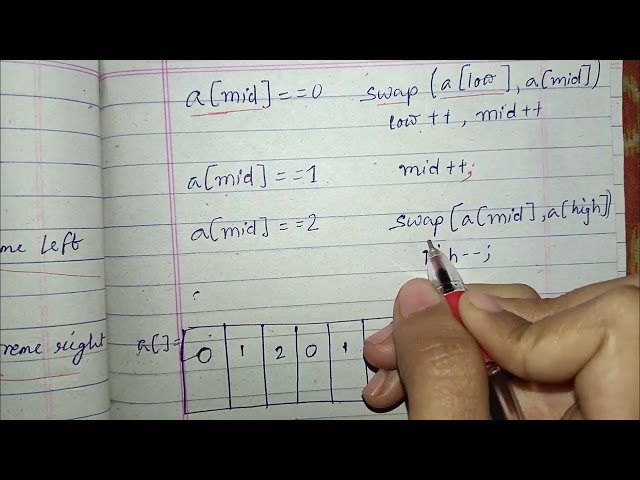 a[mid]==0 swap (a[low], a[mid])
low ++ , mid ++
a[mid]==1 mid++;
a[mid]==2 swap [a[mid], a[high])
h--;
me left
reme right
a[]= 0 1 2 0 1